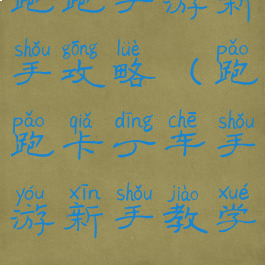 跑跑手游新
shǒu gōng lüè pǎo
手攻略（跑
pǎo qiǎ dīng chē shǒu
跑卡丁车手
yóu xīn shǒu jiào xué
游新手教学